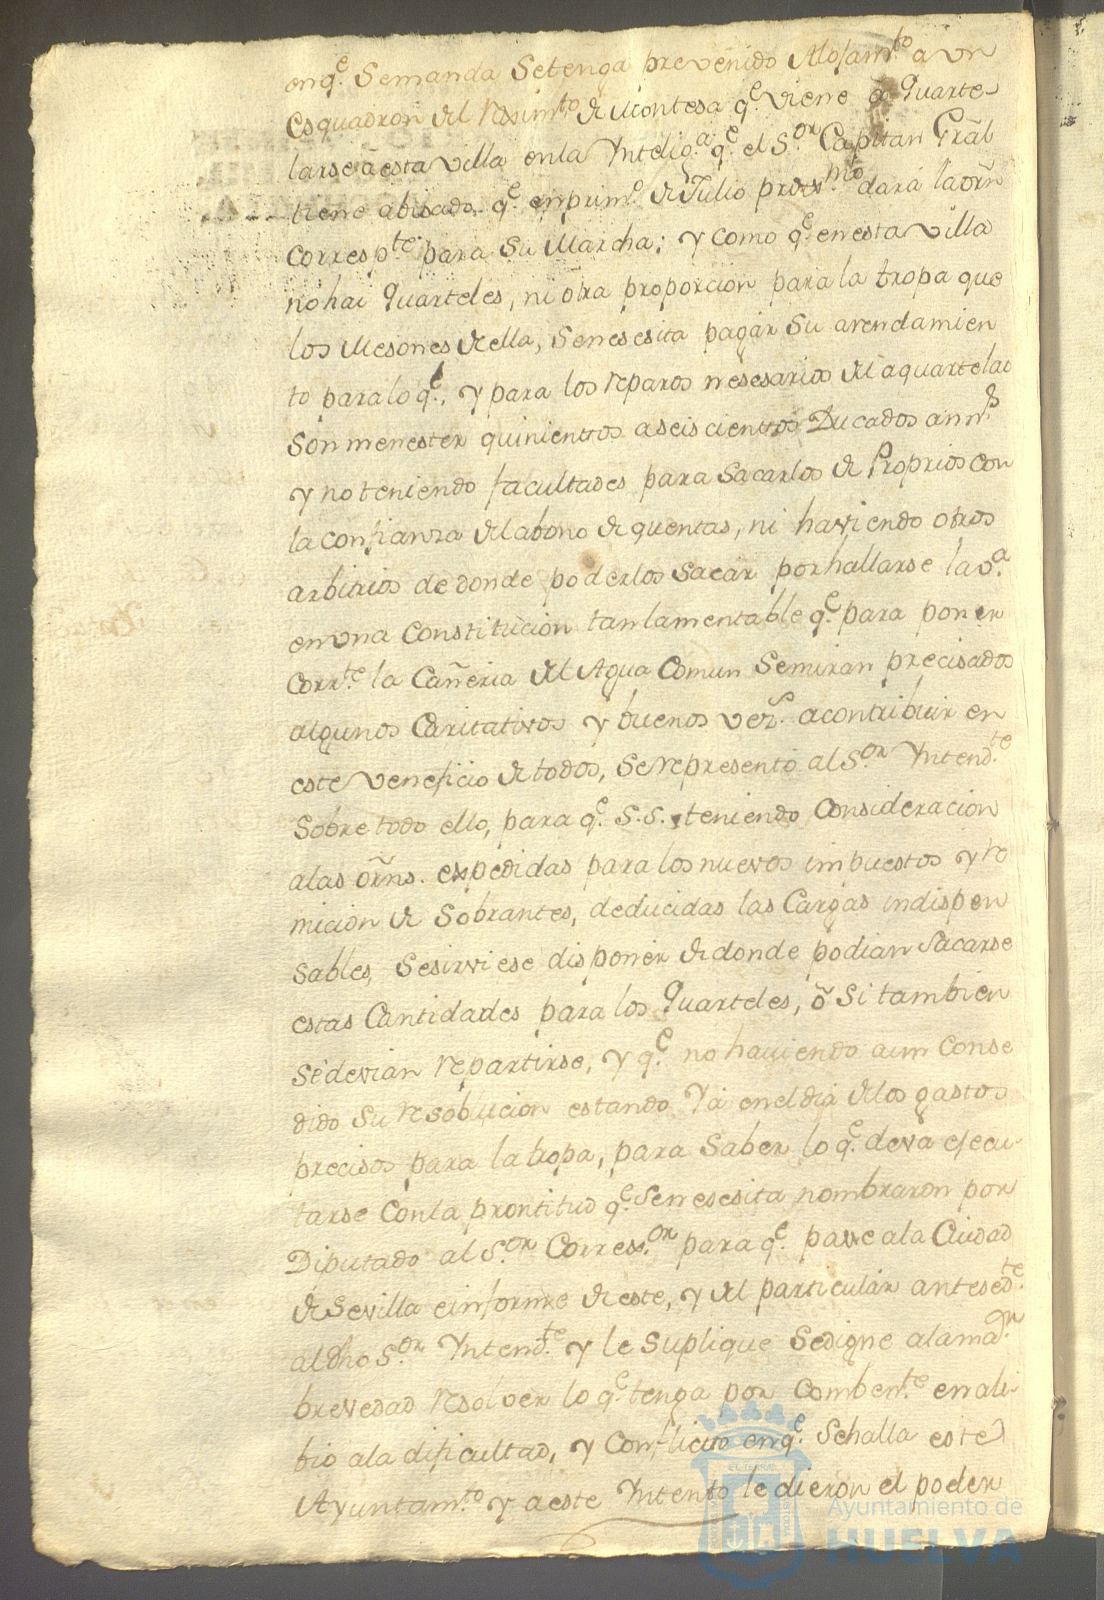 en q.e Se manda Se tenga prevenido Alojam.to a un
Esquadron del Reximt.o de Montesa q.e viene a Quarte
larse a esta villa en la Ynteligª q.e el S.or Capitan Gral
tiene abisado q.e en prim.o de Julio prox.mo dará la orñ
Corresp.te para Su Marcha; y como q.e en esta villa
no hai Quarteles, ni otra proporcion para la tropa que
los Mesones de ella, Se nesesita pagar Su arrendamien
to para lo q.e, y para los reparos nesesarios del aquartelar
Son menester quinientos a seis cientos Ducados ann.s
y no teniendo facultades para Sacarlos de Proprios con
la confianza del abono de quentas, ni haviendo otros
arbitrios de donde poderlos Sacar por hallarse la v.ª
en una Constitucion tan lamentable q.e para poner
Corr.te la Cañeria del Agua Comun Se miran precisados
algunos Caritativos y buenos vez.s a contribuir en
este veneficio de todos, Se representó al S.or Yntend.te
Sobre todo ello, para q.e S.S. teniendo Consideracion
a las orñs. expedidas para los nuevos impuestos y re
micion de Sobrantes, deducidas las Cargas indispen
sables, Se sirviese disponer de donde podian Sacarse
estas Cantidades para los Quarteles, ó Si tambien
Se devian repartirse, y q.e no haviendo aun Conse
dido Su resolucion estando Yá en el dia de los gastos
precisos para la tropa, para Saber lo q.e deva ejecu
tarse Con la prontitud q.e Se nesesita nombraron por
Diputado al S.or Correx.or para q.e passe a la Ciudad
de Sevilla e informe de este, y del particular antesed.te
al dho S.or Yntend.te y le Suplique Se digne a la ma.or
brevedad resolver lo q.e tenga por Comben.te en ali
bio a la dificultad, y Conflicto en q.e Se halla este
Ayuntam.to y a este Yntento le dieron el poder
Ayuntamiento de
HUELVA